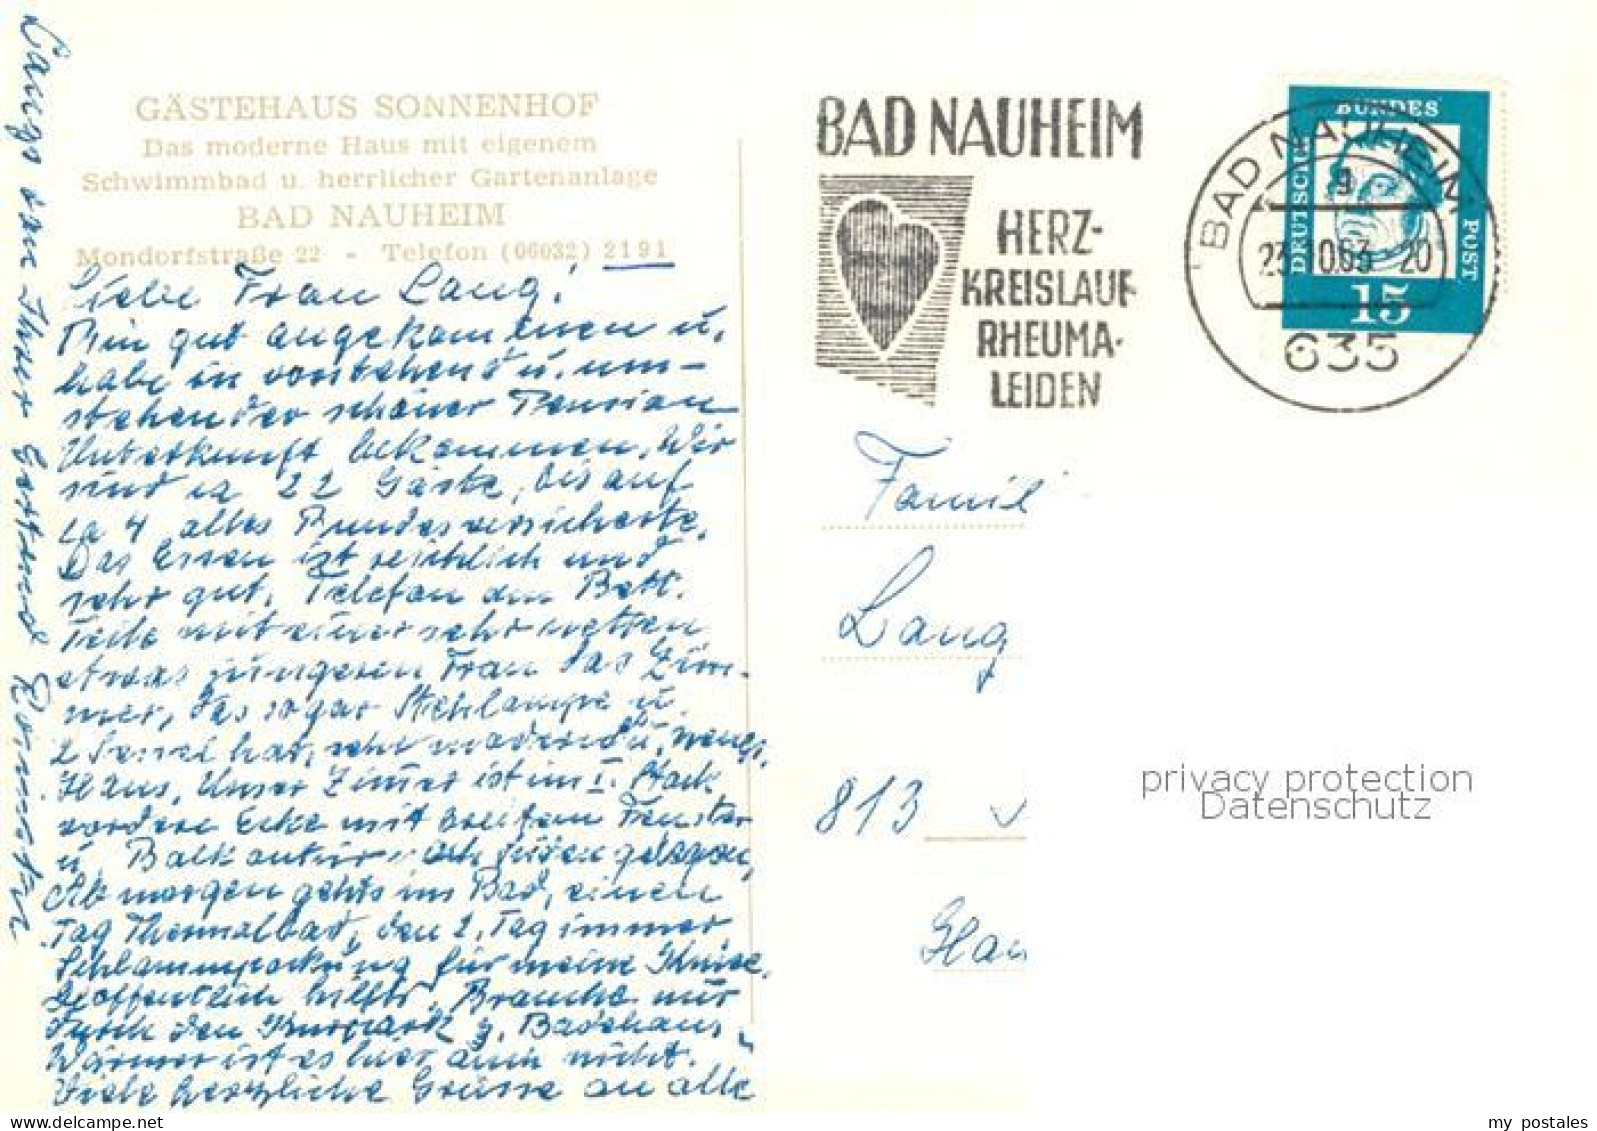 GÄSTEHAUS SONNENHOF
Das moderne Haus mit eigenem
Schwimmbad u. herrlicher Gartenanlage
BAD NAUHEIM
Mondorfstraße 22 - Telefon (06032) 2191
Liebe Frau Lang!
Bin gut angekommen u.
habe in vorstehend u. um-
stehender schöner Pension
Unterkunft bekommen. Wir
sind ca 22 Gäste, bis auf
ca 4 alles Bundesversicherte.
Das Essen ist reichlich und
sehr gut. Telefon am Bett.
Teile mit einer sehr netten
etwas jüngeren Frau das Zim-
mer, das sogar Stehlampe u.
2 Sessel hat, sehr modern u. neues
Haus. Unser Zimmer ist im I. Stock
vordere Ecke mit breitem Fenster
u. Balkontür nach Süden gelegen,
Ab morgen gehts ins Bad, einen
Tag Thermalbad, den 2. Tag immer
Schlammpackung für meine Knie.
Hoffentlich hilfts. Brauche nur
durch den Kurpark z. Badehaus.
Wärmer ist es hier auch nicht.
Viele herzliche Grüsse an alle
Langs von Ihrer
BAD NAUHEIM
HERZ-
KREISLAUF
RHEUMA-
LEIDEN
BAD NAUHEIM
g
23.10.63-20
635
DEUTSCHE
BUNDES
POST
15
Famil
Lang
813
Han
privacy protection
Datenschutz
www.delcampe.net
my_postales